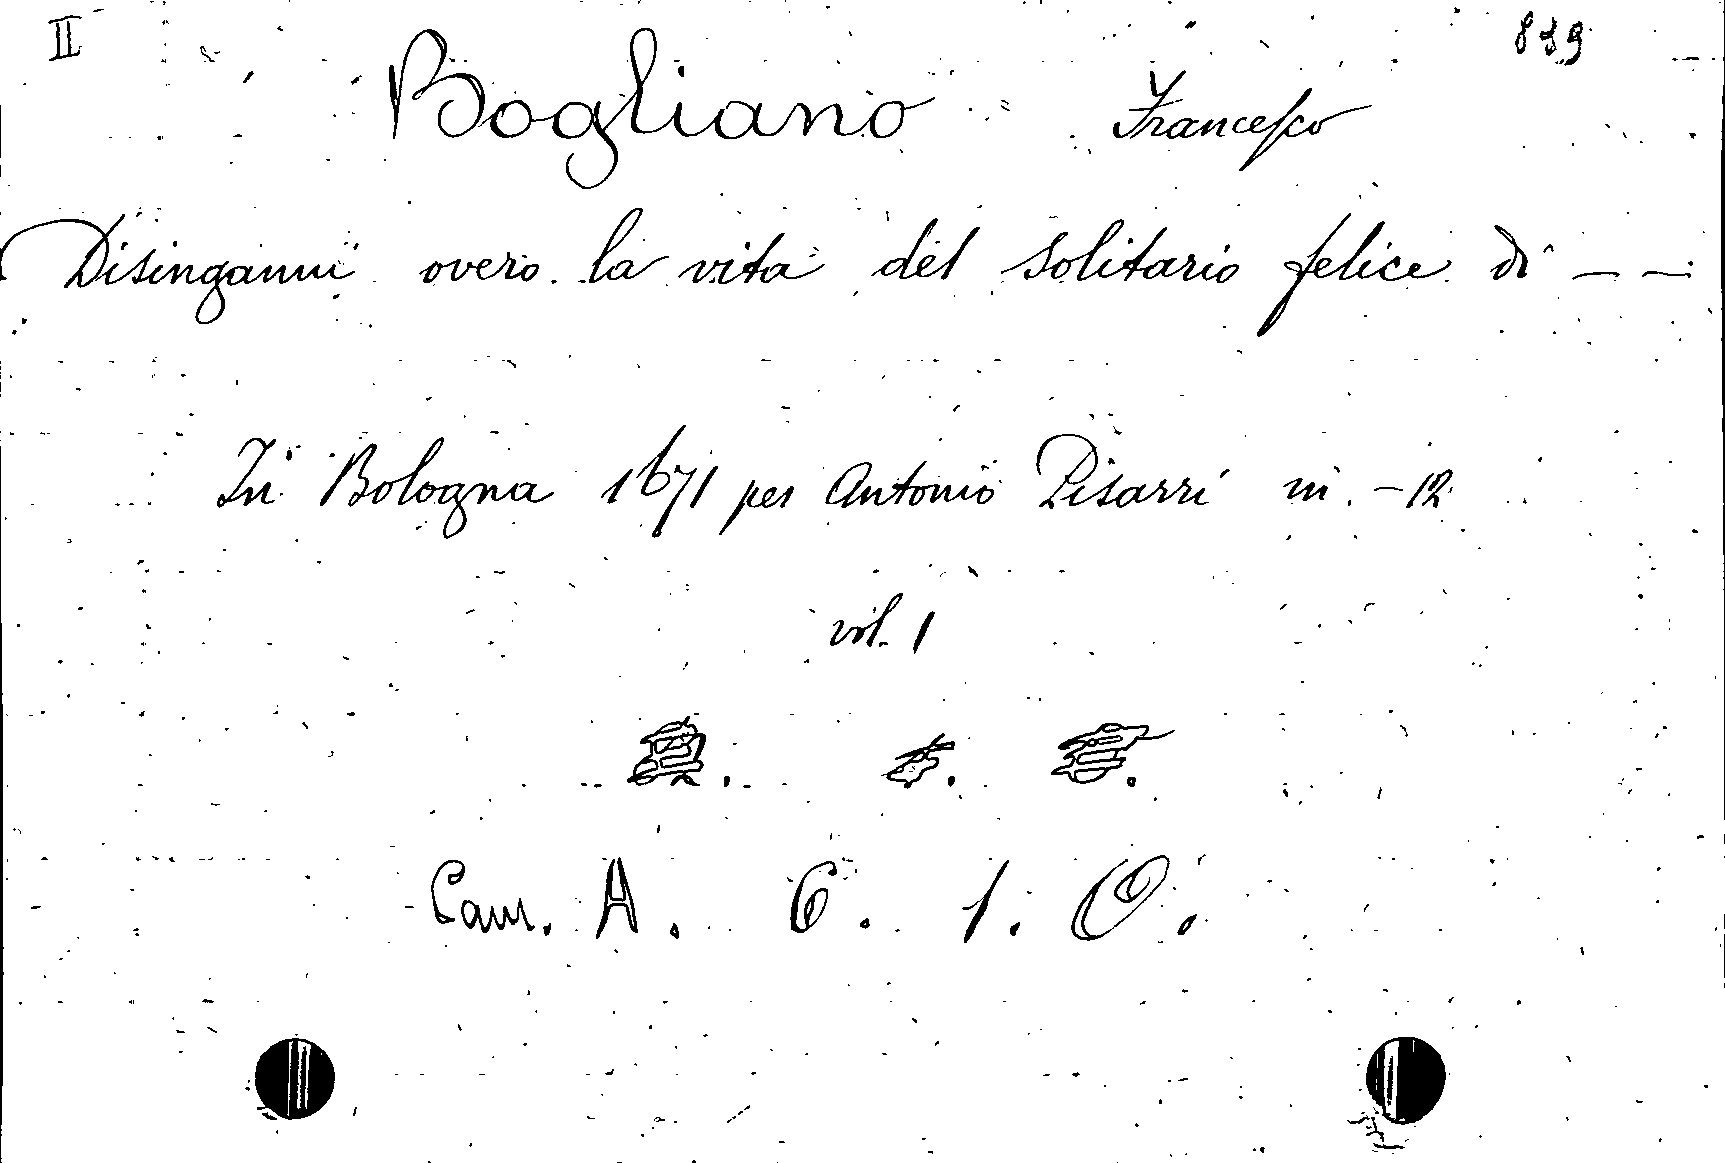 II 839
Bogliano Francesco
Disinganni overo la vita del solitario felice di — —
In Bologna 1671 per Antonio Pisarri in - 12
vol. 1
Cam. A. 6. 1. O.